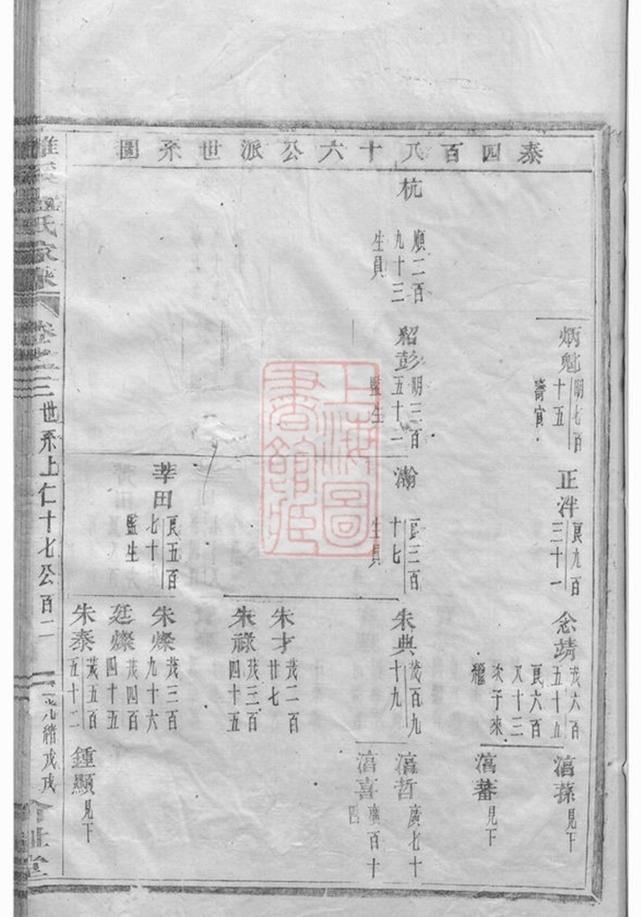 泰四百八十六公派世系圖
炳魁
明七百
十五
寄寅
正泮
良九百
三十一
念靖
茂六百
五十五
良六百
又十三
次子來
繼
滈蓀見下
滈蕃見下
杭
順二百
九十三
生員
紹彭
明三百
五十一
監生
瀚
良三百
十七
生員
朱典
茂百九
十九
滈哲
廣七十
滈喜
廣百十
四
朱才
茂二百
廿七
朱祿
茂三百
四十五
莘田
良五百
七十六
監生
朱燦
茂三百
九十六
廷燦
茂四百
四十五
朱泰
茂五百
五十二
鍾顯見下
氏家
卷之三
世系上仁十七公
百二
光緒戊戌
堂
上海圖
書館藏